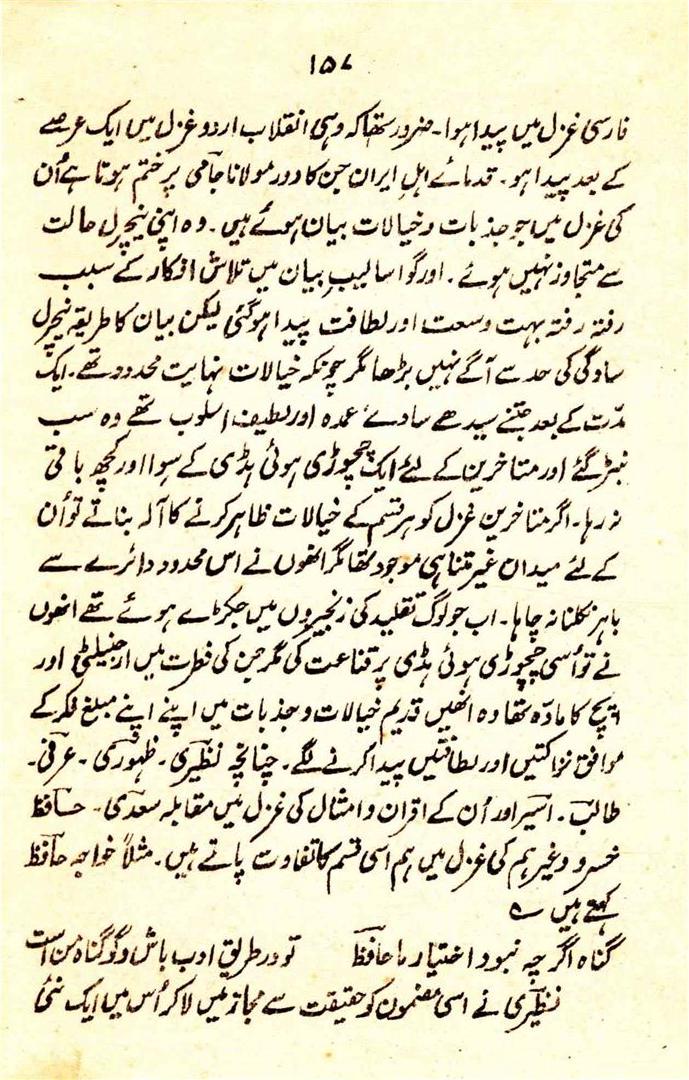 ۱۵۷
فارسی غزل میں پیدا ہوا۔ ضرور تھا کہ وہی انقلاب اردو غزل میں ایک عرصے
کے بعد پیدا ہو۔ قدمائے اہل ایران جن کا دور مولانا جامی پر ختم ہوتا ہے اُن
کی غزل میں جو جذبات و خیالات بیان ہوئے ہیں۔ وہ اپنی نیچرل حالت
سے متجاوز نہیں ہوئے۔ اور گو اسالیبِ بیان میں تلاش افکار کے سبب
رفتہ رفتہ بہت وسعت اور لطافت پیدا ہو گئی لیکن بیان کا طریقہ نیچرل
سادگی کی حد سے آگے نہیں بڑھا مگر چونکہ خیالات نہایت محدود تھے۔ ایک
مدّت کے بعد جتنے سیدھے سادے عمدہ اور لطیف اسلوب تھے وہ سب
نبڑ گئے اور متاخرین کے لئے ایک چچوڑی ہوئی ہڈی کے سوا اور کچھ باقی
نہ رہا۔ اگر متاخرین غزل کو ہر قسم کے خیالات ظاہر کرنے کا آلہ بناتے تو اُن
کے لئے میدان غیر متناہی موجود تھا مگر انھوں نے اس محدود دائرے سے
باہر نکلنا نہ چاہا۔ اب جو لوگ تقلید کی زنجیروں میں جکڑے ہوئے تھے انھوں
نے تو اُسی چچوڑی ہوئی ہڈی پر قناعت کی مگر جن کی فطرت میں ارجنیلٹی اور
اپچ کا مادّہ تھا وہ انھیں قدیم خیالات و جذبات میں اپنے اپنے مبلغ فکر کے
موافق نزاکتیں اور لطافتیں پیدا کرنے لگے۔ چنانچہ نظیری۔ ظہوری۔ عرفی۔
طالب۔ اسیر اور اُن کے اقران و امثال کی غزل میں مقابلہ سعدی۔ حافظ
خسرو وغیرہم کی غزل میں ہم اسی قسم کا تفاوت پاتے ہیں۔ مثلاً خواجہ حافظ
کہتے ہیں ؎
گناہ اگرچہ نبود اختیار ما حافظ تو در طریق ادب باش و گو گناہ من است
نظیری نے اسی مضمون کو حقیقت سے مجاز میں لا کر اُس میں ایک نئی